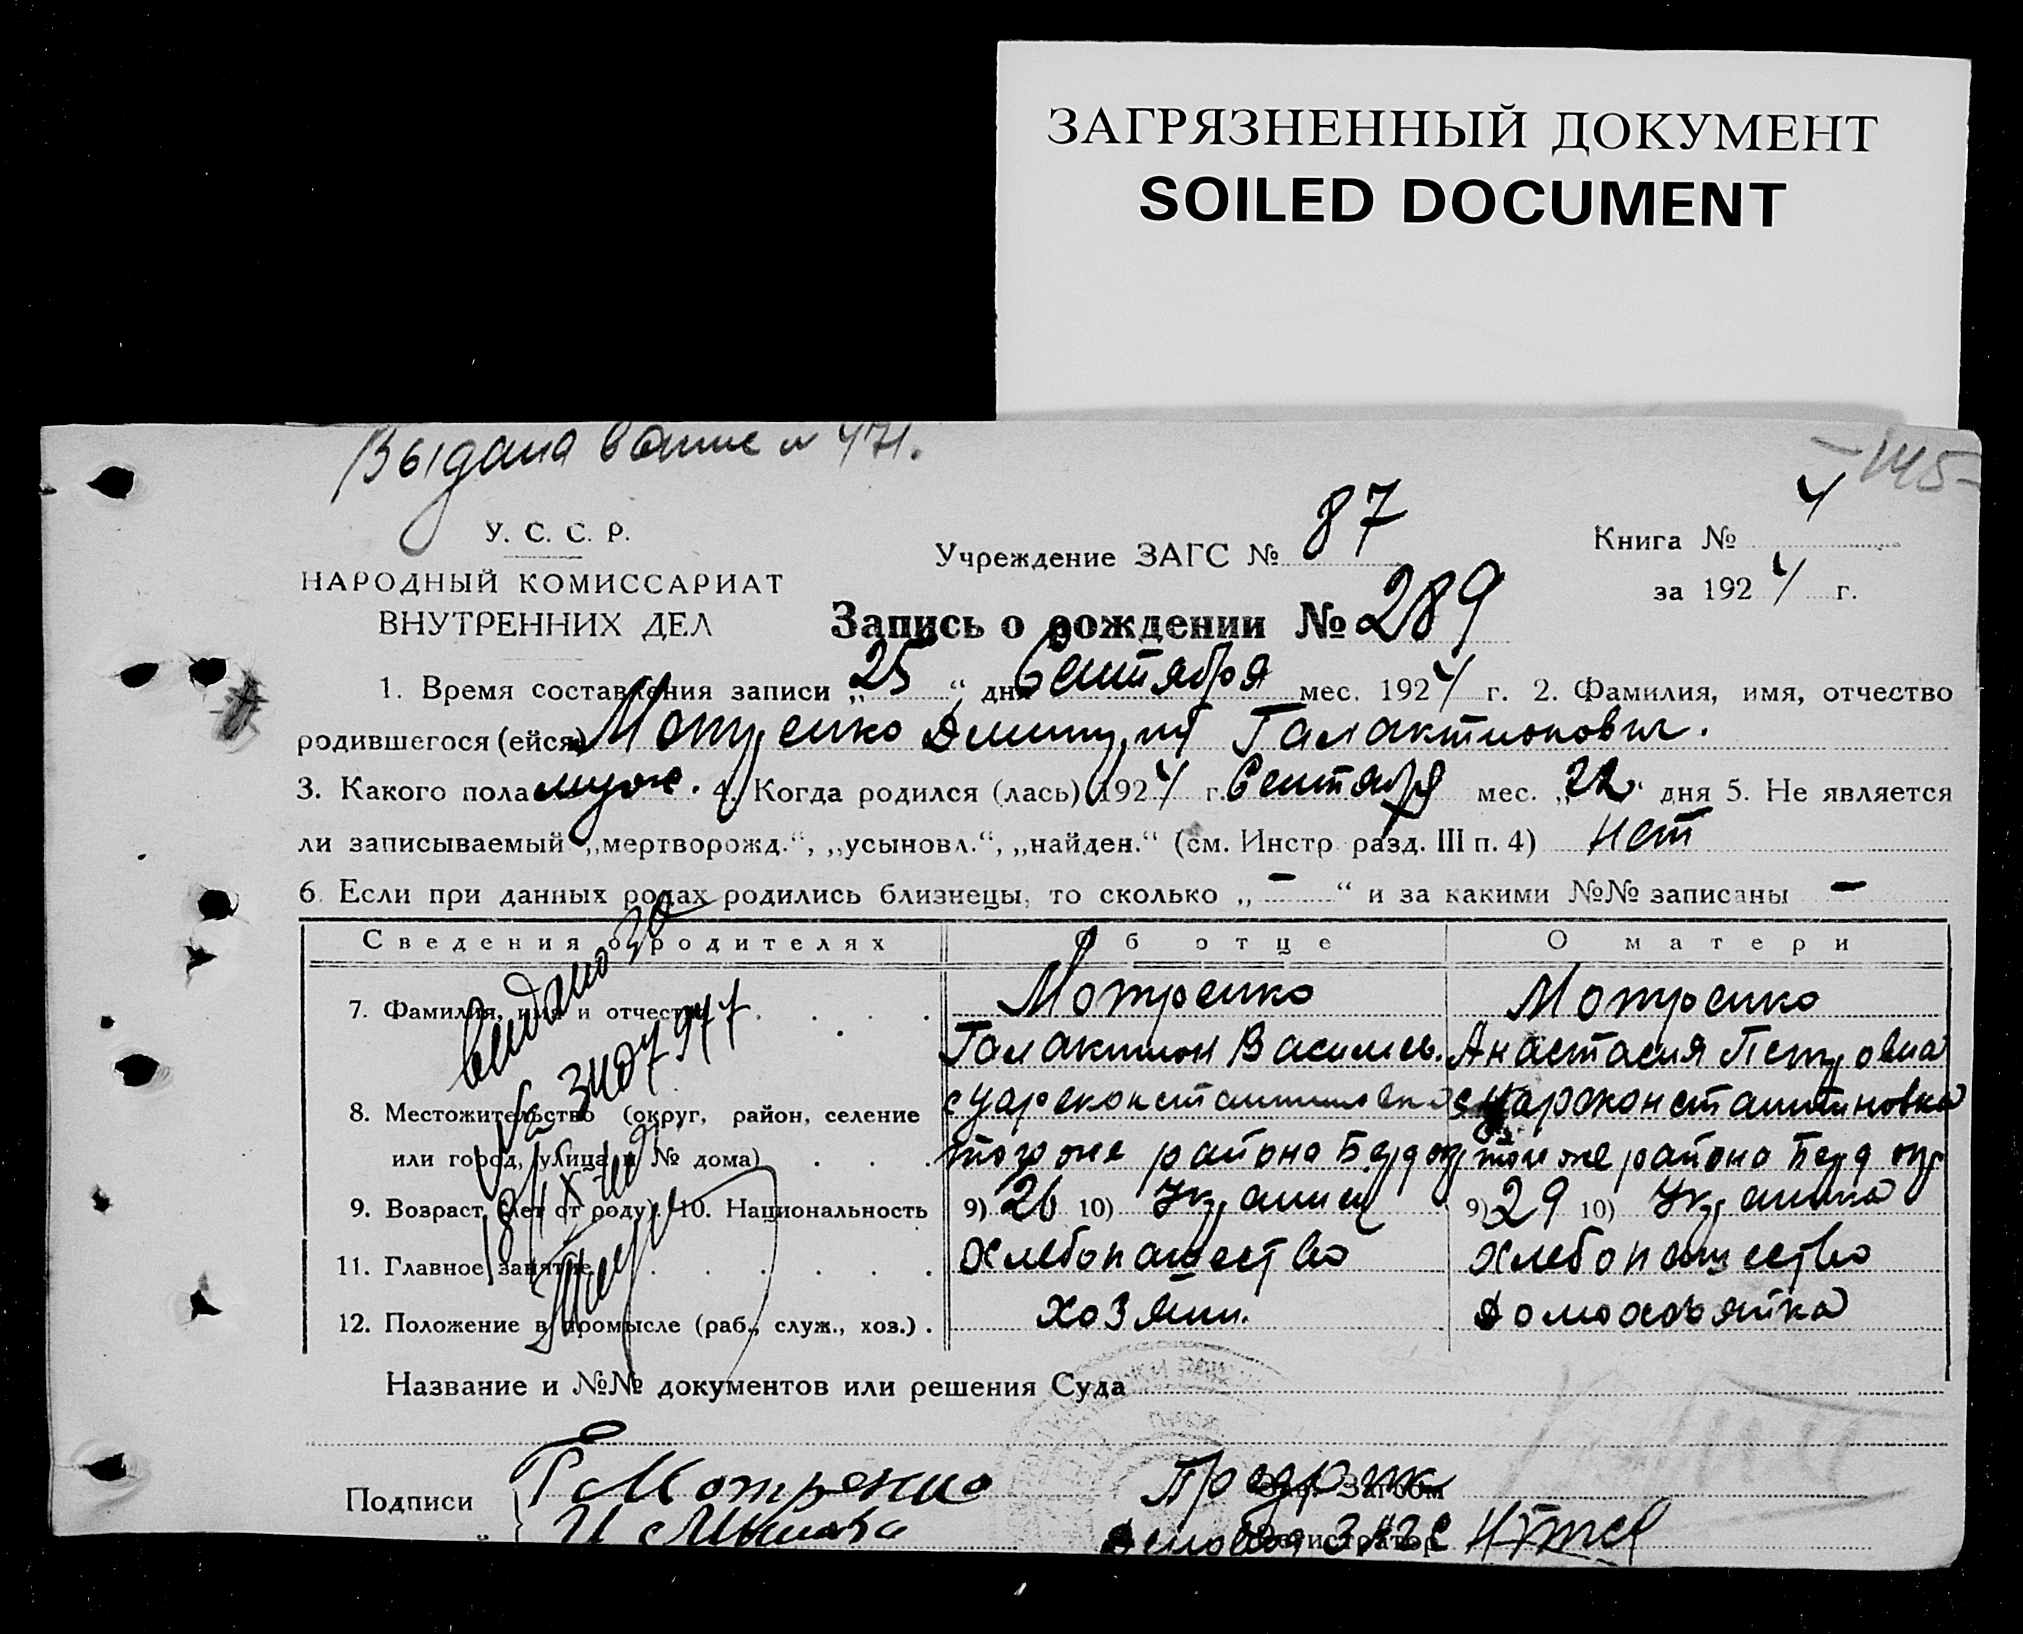 ЗАГРЯЗНЕННЫЙ ДОКУМЕНТ
SOILED DOCUMENT
Выдана
145
У. С. С. Р.
НАРОДНЫЙ КОМИССАРИАТ
ВНУТРЕННИХ ДЕЛ
Учреждение ЗАГС № 87
Книга № 4
за 1924 г.
Запись о рождении № 289
1. Время составления записи „25“ дня Сентября мес. 1924 г. 2. Фамилия, имя, отчество
родившегося (ейся) Мотренко Дмитрий Галактионович.
3. Какого пола муж. 4. Когда родился (лась) 1924 г. Сентября мес. „22“ дня 5. Не является
ли записываемый „мертворожд.“, „усыновл.“, „найден.“ (см. Инстр. разд. III п. 4) нет
6. Если при данных родах родились близнецы, то сколько „ — “ и за какими №№ записаны —
Сведения о родителях Об отце О матери
7. Фамилия, имя и отчество Мотренко Мотренко
Галактион Васильев. Анастасия Петровна
8. Местожительство (округ, район, селение с Цареконстантиновка с Цароконстантиновка
или город, улица и № дома) того же района Берд окр того же района Берд окр
9. Возраст (лет от роду). 10. Национальность 9) 26 10) Украинец 9) 29 10) Украинка
11. Главное занятие Хлебопашество Хлебопашество
12. Положение в промысле (раб., служ., хоз.) хозяин. Домохозяйка
видано
Название и №№ документов или решения Суда
Подписи Г Мотренко Предрик Зав. Загсом
Регистратор